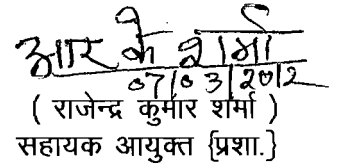 आर के शर्मा
07/03/2012
( राजेन्द्र कुमार शर्मा )
सहायक आयुक्त {प्रशा.}